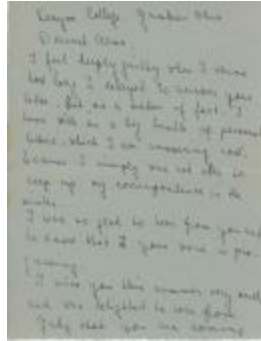 Kenyon College Gambier Ohio
Dearest Alma,
I feel deeply guilty when I
how long I delayed to answer your
letter. But as a matter of fact, I
have with me a big bundle of personal
letters, which I am answering now,
because I simply was not able to
keep up my correspondence in the
I was so glad to hear from you and
to know that your voice is
I miss you this summer very much
and was delighted to hear from
that you are coming